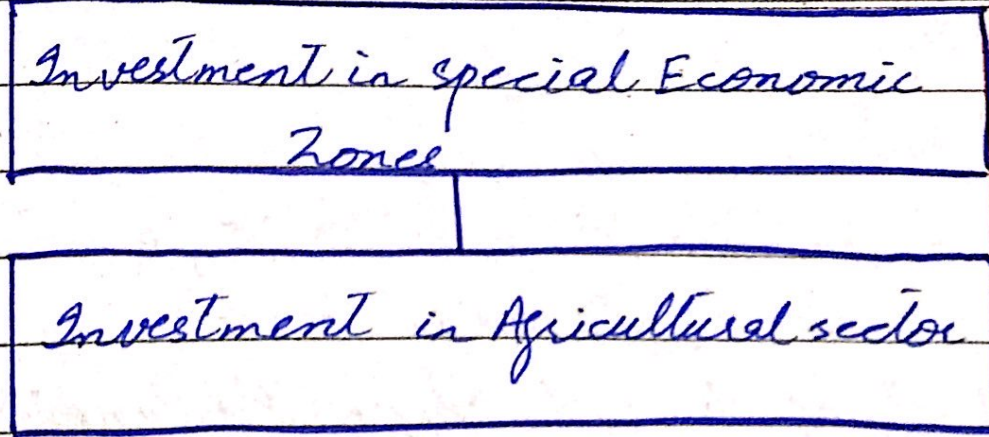 Investment in special Economic
Zones
Investment in Agricultural sector